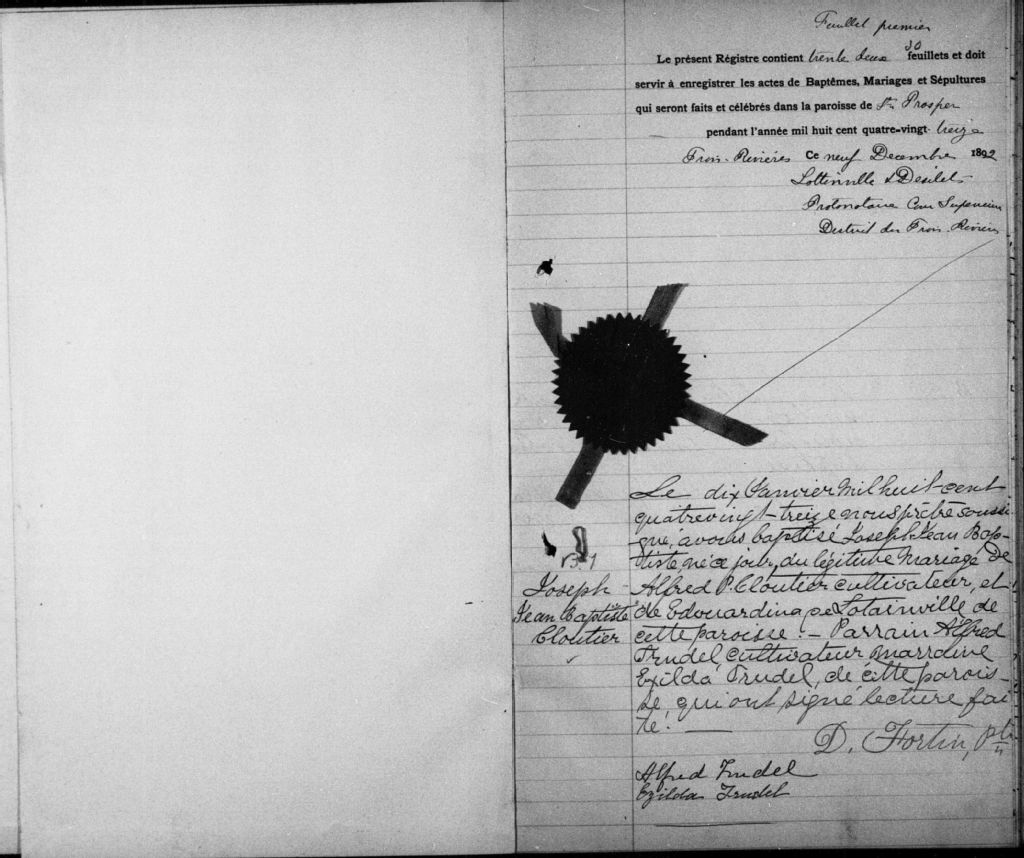 Feuillet premier
30
Le présent Régistre contient trente deux feuillets et doit
servir à enregistrer les actes de Baptêmes, Mariages et Sépultures
qui seront faits et célébrés dans la paroisse de St Prosper
pendant l'année mil huit cent quatre-vingt- treize
Trois-Rivières Ce neuf Decembre 1892
Lottinville & Desilets
Protonotaire Cour Superieure
District des Trois-Rivières
B.1
Joseph
Jean Baptiste
Cloutier
Le dix Janvier Mil huit-cent
quatrevingt-treize nous prêtre soussi-
gné, avons baptisé Joseph Jean Bap-
tiste né ce jour, du légitime Mariage de
Alfred P. Cloutier cultivateur, et
de Edouardina de Lotainville de
cette paroisse. — Parrain Alfred
Trudel, cultivateur Marraine
Exilda Trudel, de cette parois-
se, qui ont signé lecture fai-
te. —
D. Fortin, ptre
Alfred Trudel
Exilda Trudel